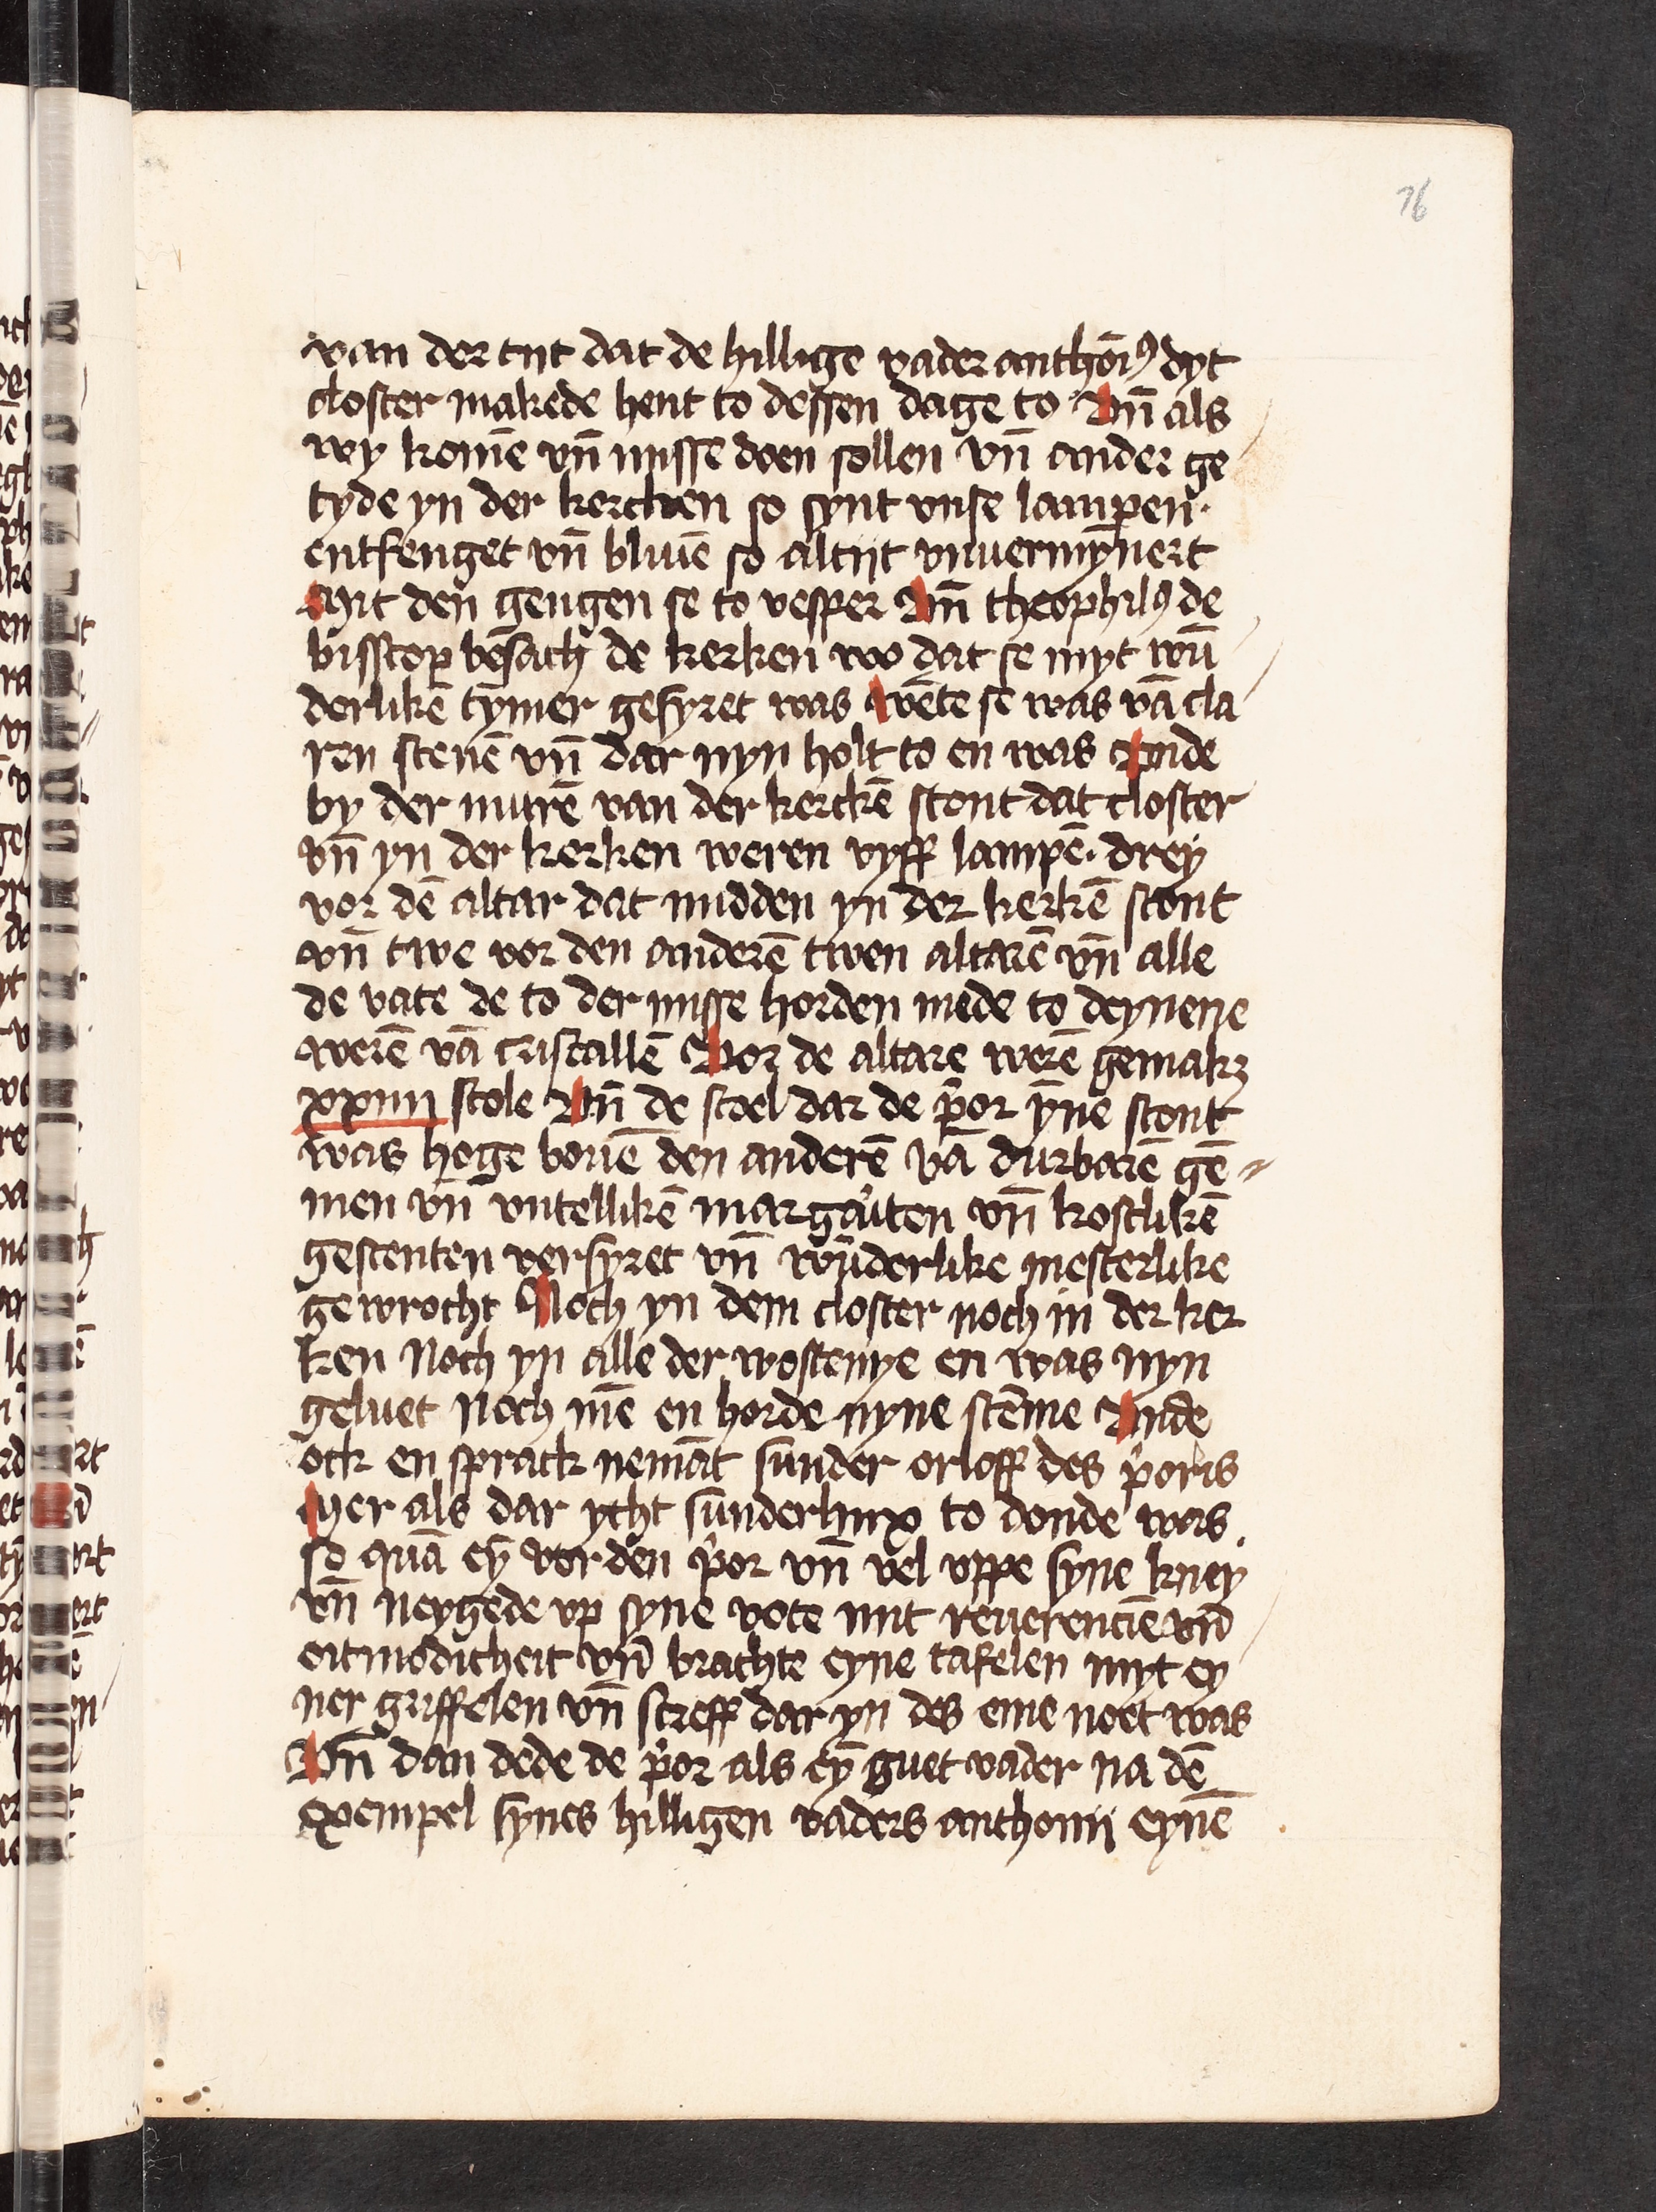 76
van der tijt dat de hillige vader anthoniꝰ dyt
closter makede hent to dessen dage to Vn̄ als
wy komē vn̄ misse doen sollen vn̄ ander ge
tyde yn der kercken so synt vnse lampen·
entfenget vn̄ bliuē so altijt vnuermȳnert
Mit den gengen se to vesper Vn̄ theophilꝰ de
bisscop besach de kerken wo dat se myt wū
derlikē tȳmer gesyret was Wēte se was vā cla
ren stenē vn̄ dar nyn holt to en was Vnde
by der murē van der kerckē stont dat closter
vn̄ yn der kerken weren vyff lampē· drey
vor dē altar dat midden yn der kerkē stont
vn̄ twe vor den anderē twen altarē vn̄ alle
de vate de to der misse horden mede to deynene
werē vā cristallē Vor de altare werē gemakꝫ
xxiiii stole Vn̄ de stoel dar de p̄or ȳne stont
was hoge bouē den anderē vā durbarē gē
men vn̄ vntellikē margariten vn̄ kostlikē
gestenten versyret vn̄ wūderlike mesterlike
gewrocht Noch yn dem closter noch in der ker
ken Noch yn alle der wostenye en was nyn
geluet Noch mē en horde nyne stēme Vnde
ock en sprack nemāt sunder orloff des p̄oris
Mer als dar ytht sunderlinx to donde was
so quā eȳ vor den p̄or vn̄ vel vppe syne kney
vn̄ neygede vp syne vote mit reuerencie vn̄
oitmodicheit vn̄ brachte eyne tafelen myt ey
ner griffelen vn̄ screff dar yn des eme noet was
Vn̄ dan dede de p̄or als eȳ guet vader na dē
exempel synes hilligen vaders anthonii eynē